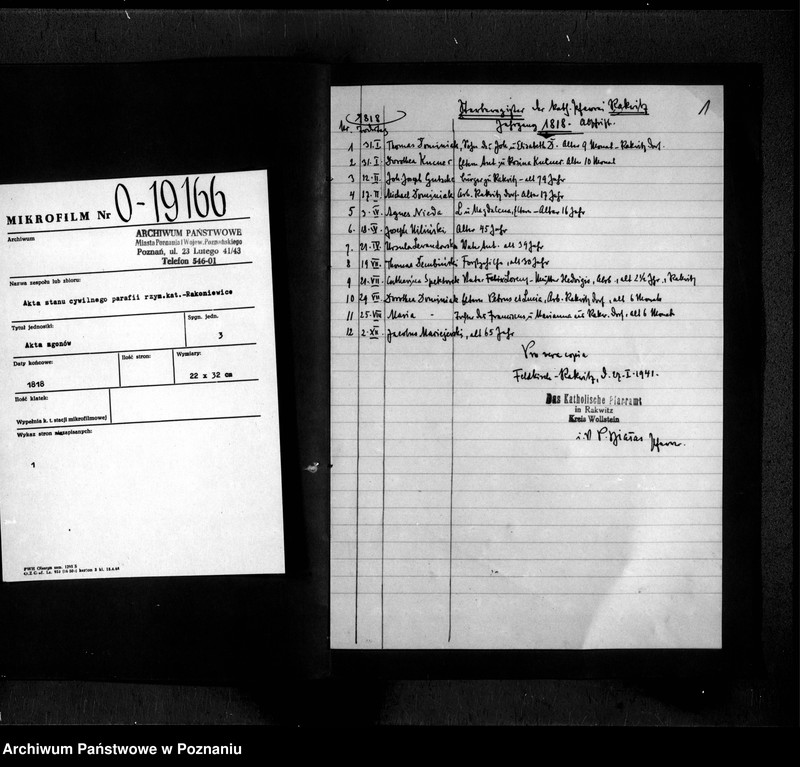 MIKROFILM Nr 0-19166
Archiwum
ARCHIWUM PAŃSTWOWE
Miasta Poznania i Wojew. Poznańskiego
Poznań, ul. 23 Lutego 41/43
Telefon 546-01
Nazwa zespołu lub zbioru:
Akta stanu cywilnego parafii rzym.kat.-Rakoniewice
Tytuł jednostki:
Akta zgonów
Sygn. jedn.
3
Daty końcowe:
1818
Ilość stron:
Wymiary:
22 x 32 cm
Ilość klatek:
Wypełnia k. t. stacji mikrofilmowej
Wykaz stron niezapisanych:
1
1
Sterberegister der kath. Pfarrei Rakwitz
Jahrgang 1818. Abschrift.
1818
Nr. Todestag
1 31.I. Thomas Dominiak, Sohn des Joh. u. Elisabeth D. alter 9 Monat - Rakwitz Dorf.
2 31.I. Dorothea Kucner Eltern Ant. u. Rosina Kucner alter 10 Monat
3 12.II. Joh. Joseph Gutsche Bürger zu Rakwitz - alt 79 Jahr
4 17.II. Michael Dominiak Arb. Rakwitz Dorf alter 17 Jahr
5 Agnes Nieda L. u. Magdalena, Eltern - Alter 16 Jahr
6 Joseph Miliński Alter 45 Jahr
7. Ursula Ant. alt 34 Jahr
8 Thomas Dembinski alt 30 Jahr
9 Catharina Vater Lorenz - Mutter Hedwigis, alt Rakwitz
10 Dorothea Dominiak Eltern Petrus et Lucia, Arb. Rakwitz Dorf, alt 6 Monate
11 25.VIII Maria - Tochter des Franciscus u. Marianna aus Rakw. Dorf, alt 6 Monat
12 2.XII. Jacobus Maciejewski, alt 65 Jahr
Pro vera copia
Rakwitz, d. 27.I.1941.
Das Katholische Pfarramt
in Rakwitz
Kreis Wollstein
Pfarrer.
Archiwum Państwowe w Poznaniu